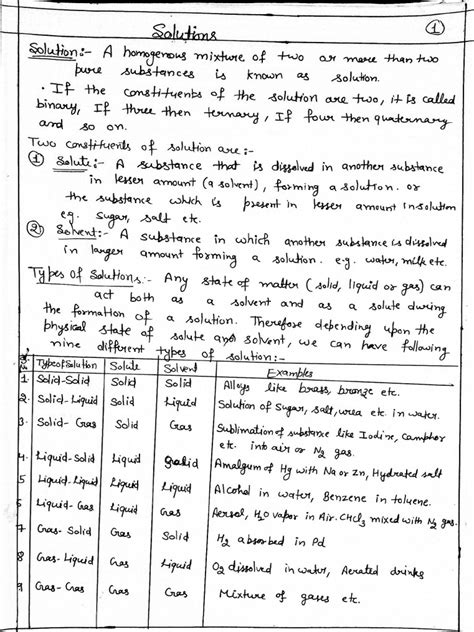 Solutions
1
Solution:- A homogenous mixture of two or more than two
pure substances is known as solution.
· If the constituents of the solution are two, it is called
binary, If three then ternary, If four then quaternary
and so on.
Two constituents of solution are:-
1 Solute:- A substance that is dissolved in another substance
in lesser amount (a solvent), forming a solution. or
the substance which is present in lesser amount in solution
eg. Sugar, salt etc.
2 Solvent:- A substance in which another substance is dissolved
in larger amount forming a solution. e.g. water, milk etc.
Types of Solutions:- Any state of matter (solid, liquid or gas) can
act both as a solvent and as a solute during
the formation of a solution. Therefore depending upon the
physical state of solute and solvent, we can have following
nine different types of solution:-
Type of Solution Solute Solvent Examples
1 Solid-Solid Solid Solid Alloys like brass, bronze etc.
2. Solid-Liquid Solid Liquid Solution of Sugar, salt, urea etc. in water.
3. Solid-Gas Solid Gas Sublimation of substance like Iodine, Camphor
etc. into air or N2 gas.
4. Liquid-Solid Liquid Solid Amalgum of Hg with Na or Zn, Hydrated salt
5 Liquid-Liquid Liquid Liquid Alcohol in water, Benzene in toluene.
6 Liquid-Gas Liquid Gas Aersol, H2O vapor in Air. CHCl3 mixed with N2 gas.
7 Gas-Solid Gas Solid H2 absorbed in Pd
8 Gas-Liquid Gas Liquid O2 dissolved in water, Aerated drinks
9 Gas-Gas Gas Gas Mixture of gases etc.